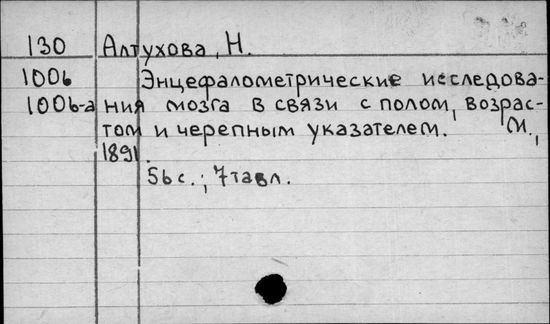 130 Алтухова, Н.
1006 Энцефалометрические исследова-
1006-а ния мозга в связи с полом, возрас-
том и черепным указателем. М.,
1891.
56 с.; 7 табл.